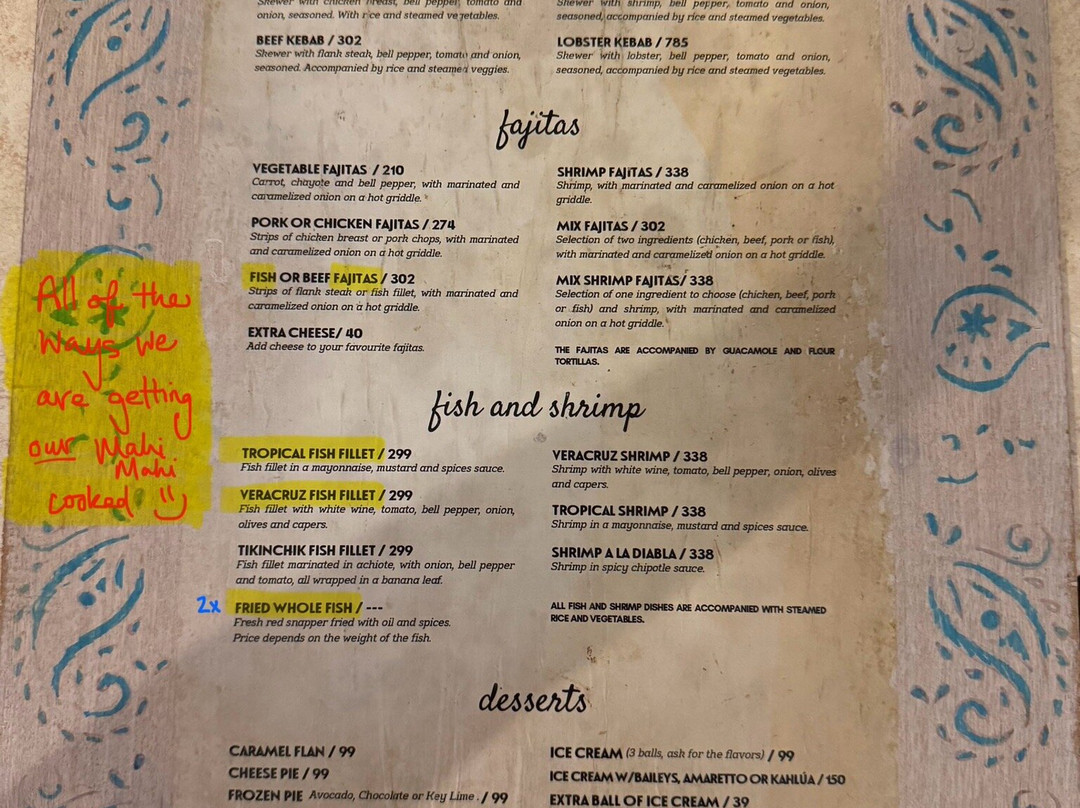 Skewer with chicken breast, bell pepper, tomato and
onion, seasoned. With rice and steamed vegetables.
BEEF KEBAB / 302
Skewer with flank steak, bell pepper, tomato and onion,
seasoned. Accompanied by rice and steamed veggies.
Skewer with shrimp, bell pepper, tomato and onion,
seasoned, accompanied by rice and steamed vegetables.
LOBSTER KEBAB / 785
Skewer with lobster, bell pepper, tomato and onion,
seasoned, accompanied by rice and steamed vegetables.
fajitas
VEGETABLE FAJITAS / 210
Carrot, chayote and bell pepper, with marinated and
caramelized onion on a hot griddle.
PORK OR CHICKEN FAJITAS / 274
Strips of chicken breast or pork chops, with marinated
and caramelized onion on a hot griddle.
FISH OR BEEF FAJITAS / 302
Strips of flank steak or fish fillet, with marinated and
caramelized onion on a hot griddle.
EXTRA CHEESE/ 40
Add cheese to your favourite fajitas.
SHRIMP FAJITAS / 338
Shrimp, with marinated and caramelized onion on a hot
griddle.
MIX FAJITAS / 302
Selection of two ingredients (chicken, beef, pork or fish),
with marinated and caramelized onion on a hot griddle.
MIX SHRIMP FAJITAS/ 338
Selection of one ingredient to choose (chicken, beef, pork
or fish) and shrimp, with marinated and caramelized
onion on a hot griddle.
THE FAJITAS ARE ACCOMPANIED BY GUACAMOLE AND FLOUR
TORTILLAS.
All of the
ways we
are getting
our Mahi
Mahi
cooked! :)
fish and shrimp
TROPICAL FISH FILLET / 299
Fish fillet in a mayonnaise, mustard and spices sauce.
VERACRUZ FISH FILLET / 299
Fish fillet with white wine, tomato, bell pepper, onion,
olives and capers.
TIKINCHIK FISH FILLET / 299
Fish fillet marinated in achiote, with onion, bell pepper
and tomato, all wrapped in a banana leaf.
2x FRIED WHOLE FISH / ---
Fresh red snapper fried with oil and spices.
Price depends on the weight of the fish.
VERACRUZ SHRIMP / 338
Shrimp with white wine, tomato, bell pepper, onion, olives
and capers.
TROPICAL SHRIMP / 338
Shrimp in a mayonnaise, mustard and spices sauce.
SHRIMP A LA DIABLA / 338
Shrimp in spicy chipotle sauce.
ALL FISH AND SHRIMP DISHES ARE ACCOMPANIED WITH STEAMED
RICE AND VEGETABLES.
desserts
CARAMEL FLAN / 99
CHEESE PIE / 99
FROZEN PIE Avocado, Chocolate or Key Lime . / 99
ICE CREAM (3 balls, ask for the flavors) / 99
ICE CREAM W/BAILEYS, AMARETTO OR KAHLÚA / 150
EXTRA BALL OF ICE CREAM / 39